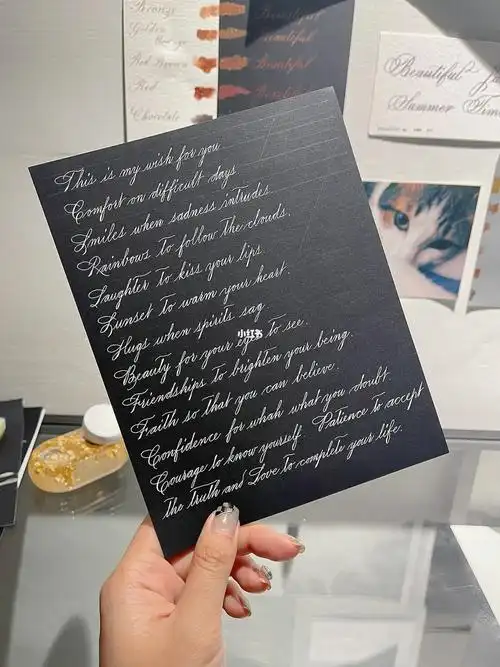 Bronze
Golden
Red Brown
Red
Chocolate
Beautiful
Beautiful
Beautiful
Beautiful
Summer Time
This is my wish for you
Comfort on difficult days
Smiles when sadness intrudes
Rainbows to follow the clouds.
Laughter to kiss your lips.
Sunset to warm your heart.
Hugs when spirits sag.
Beauty for your eyes to see.
Friendships to brighten your being.
Faith so that you can believe.
Confidence for whah what you doubt.
Courage to know yourself. Patience to accept
the truth and Love to complete your life.
小红书